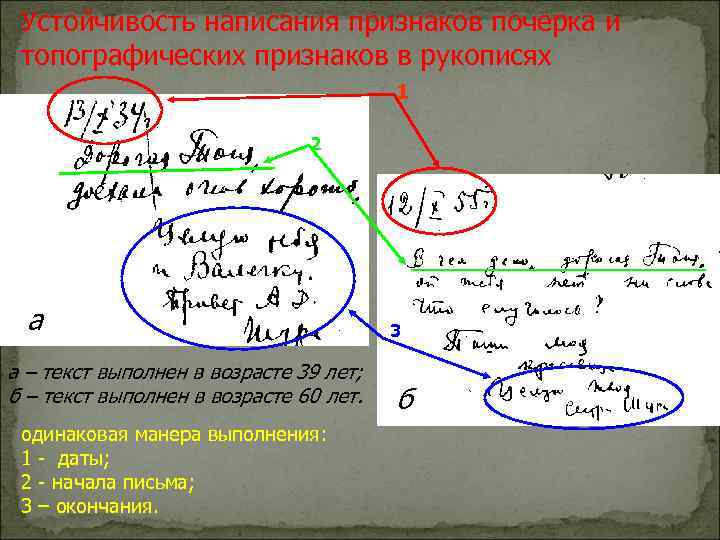 Устойчивость написания признаков почерка и
топографических признаков в рукописях
1
13/X 34г.
2
Дорогая Тноня,
доехала очень хорошо.
Целую тебя
и Валечку.
Привет А. Д.
Шура
а
12/X 55г.
В чем дело, дорогая Тноня,
от тебя нет ни слова
Что случилось?
3
Пиши моя
красавица
Целую твоя
сестр. Шура
б
а – текст выполнен в возрасте 39 лет;
б – текст выполнен в возрасте 60 лет.
одинаковая манера выполнения:
1 - даты;
2 - начала письма;
3 – окончания.